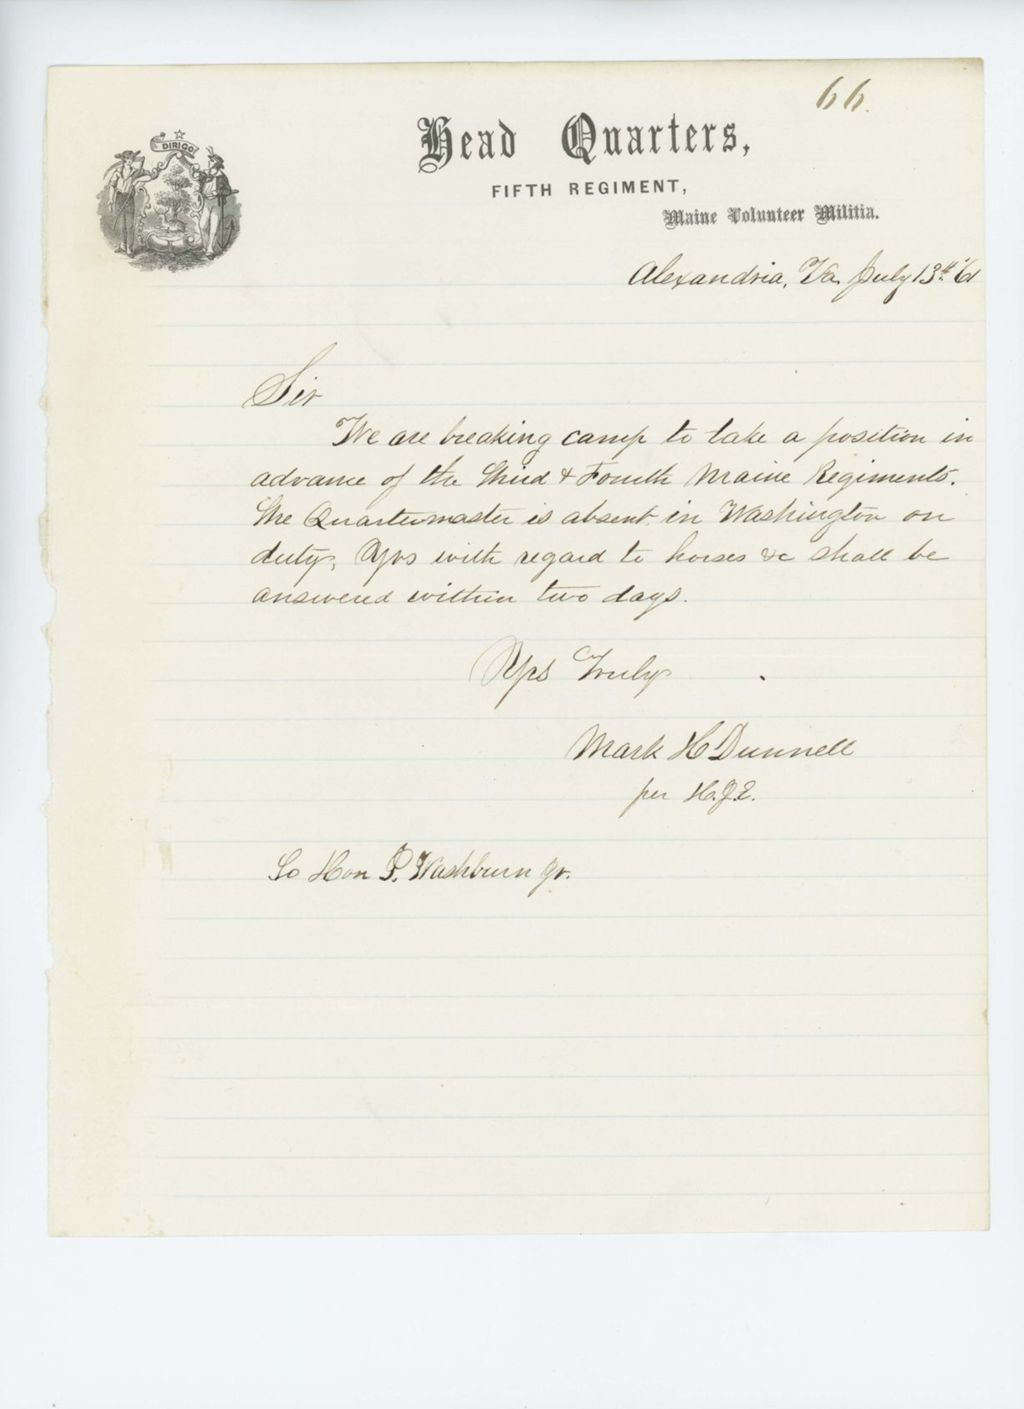 66.
DIRIGO
Head Quarters,
FIFTH REGIMENT,
Maine Volunteer Militia.
Alexandria, Va. July 13th '61
Sir
We are breaking camp to take a position in
advance of the Third & Fourth Maine Regiments.
The Quartermaster is absent in Washington on
duty, Yrs with regard to horses &c shall be
answered within two days.
Yrs Truly
Mark H Dunnell
per H.J.E.
To Hon P. Washburn Jr.